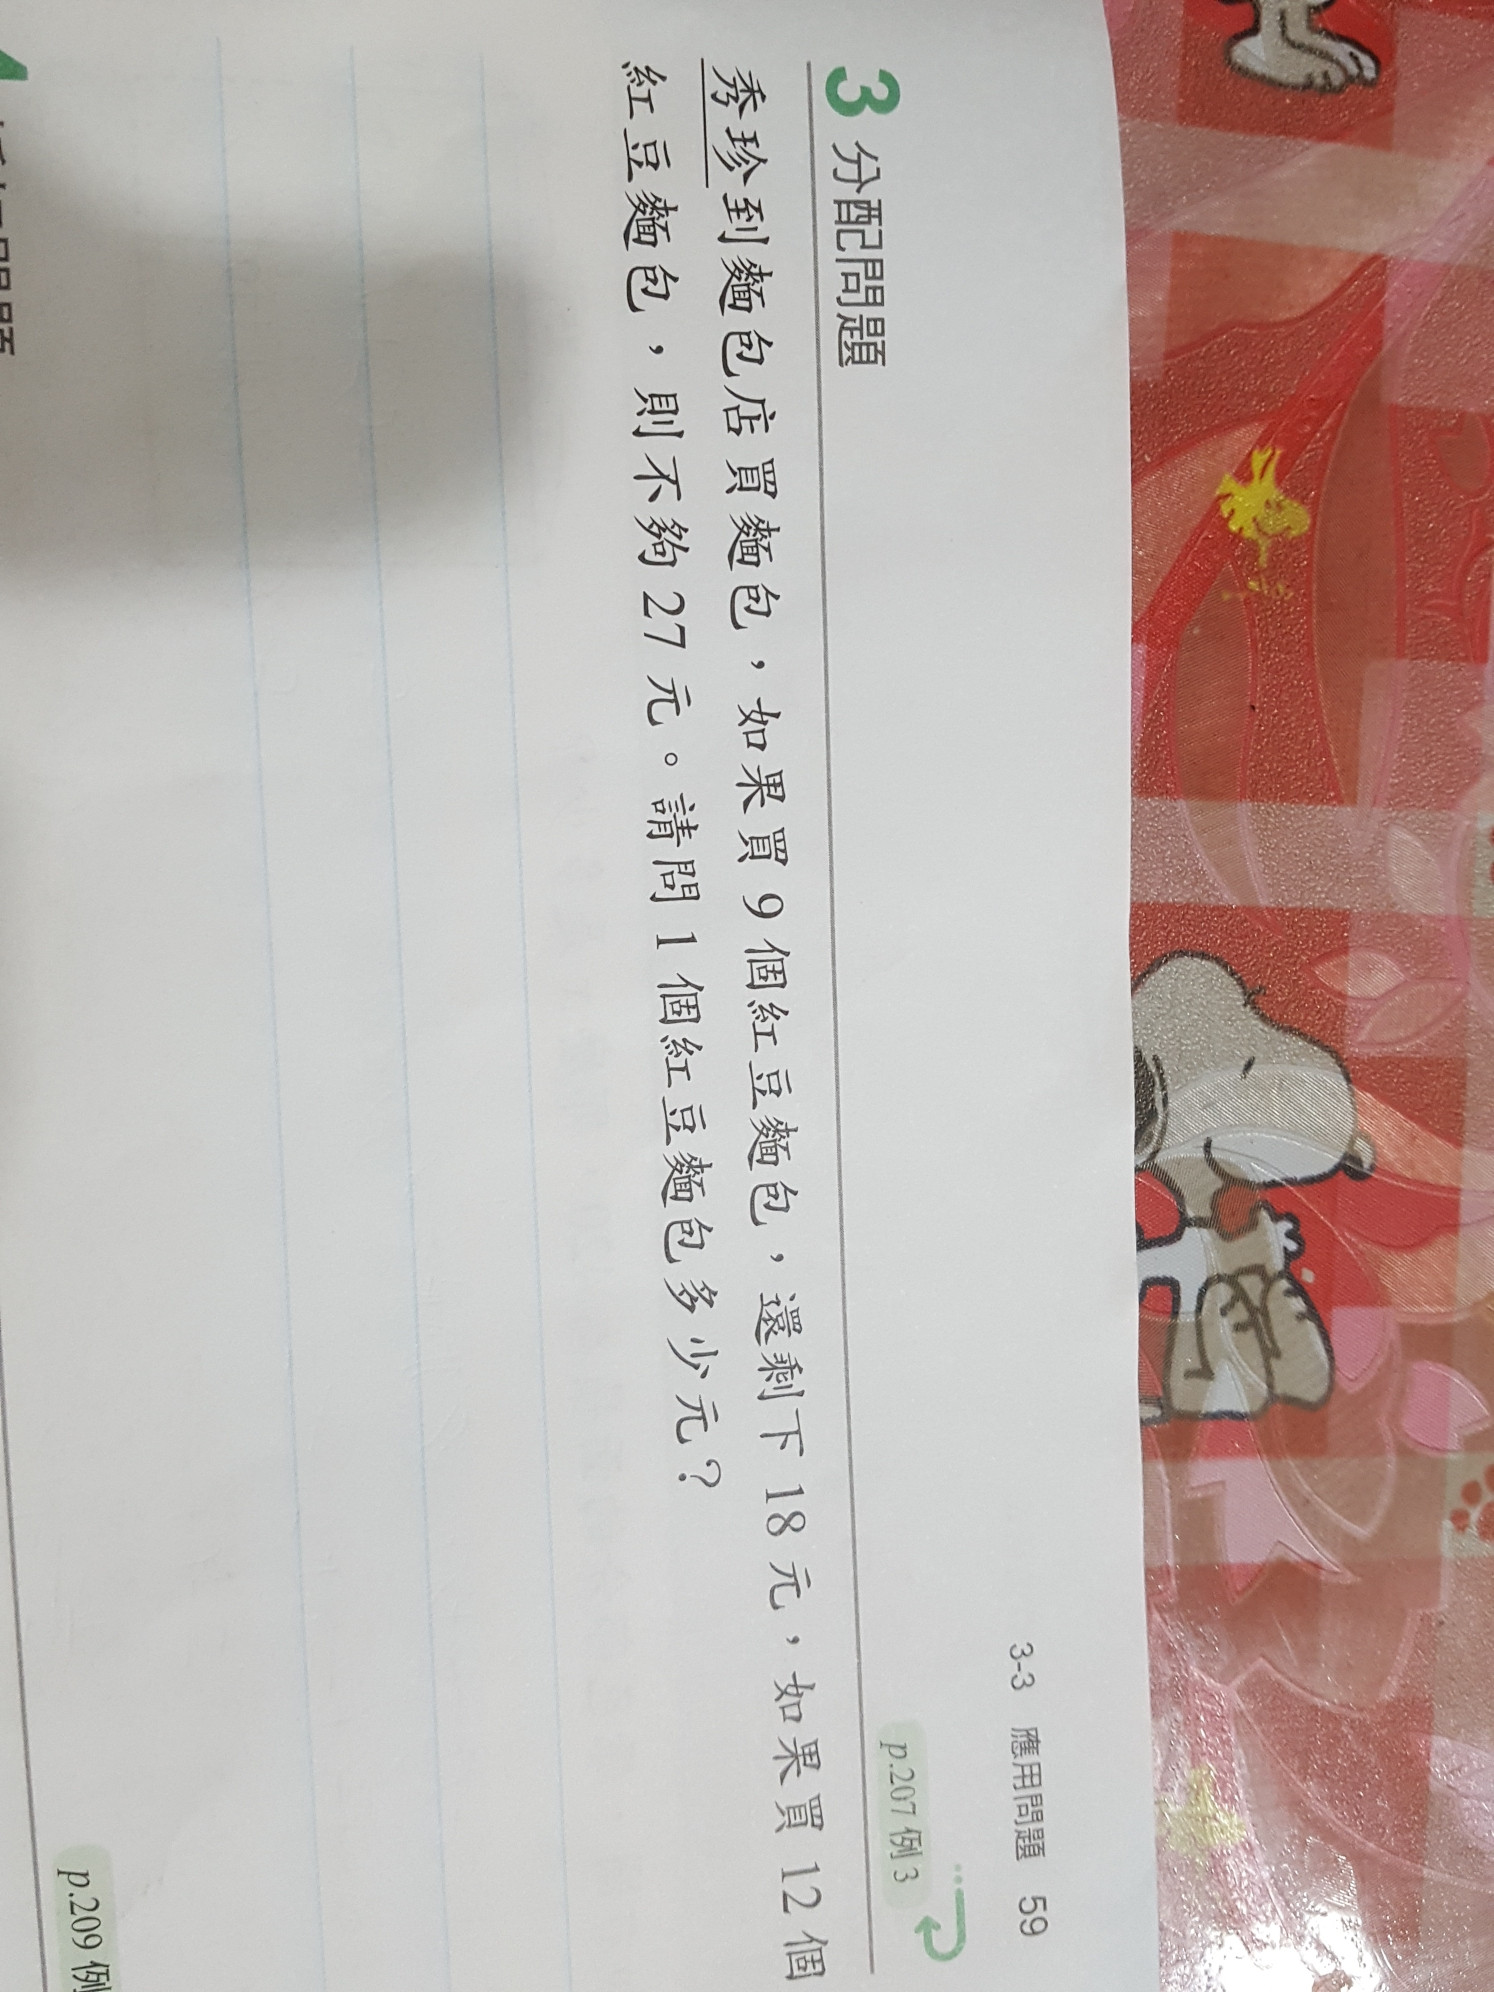 3-3 應用問題 59
3 分配問題
p.207 例 3
秀珍到麵包店買麵包，如果買 9 個紅豆麵包，還剩下 18 元，如果買 12 個
紅豆麵包，則不夠 27 元。請問 1 個紅豆麵包多少元？
p.209 例